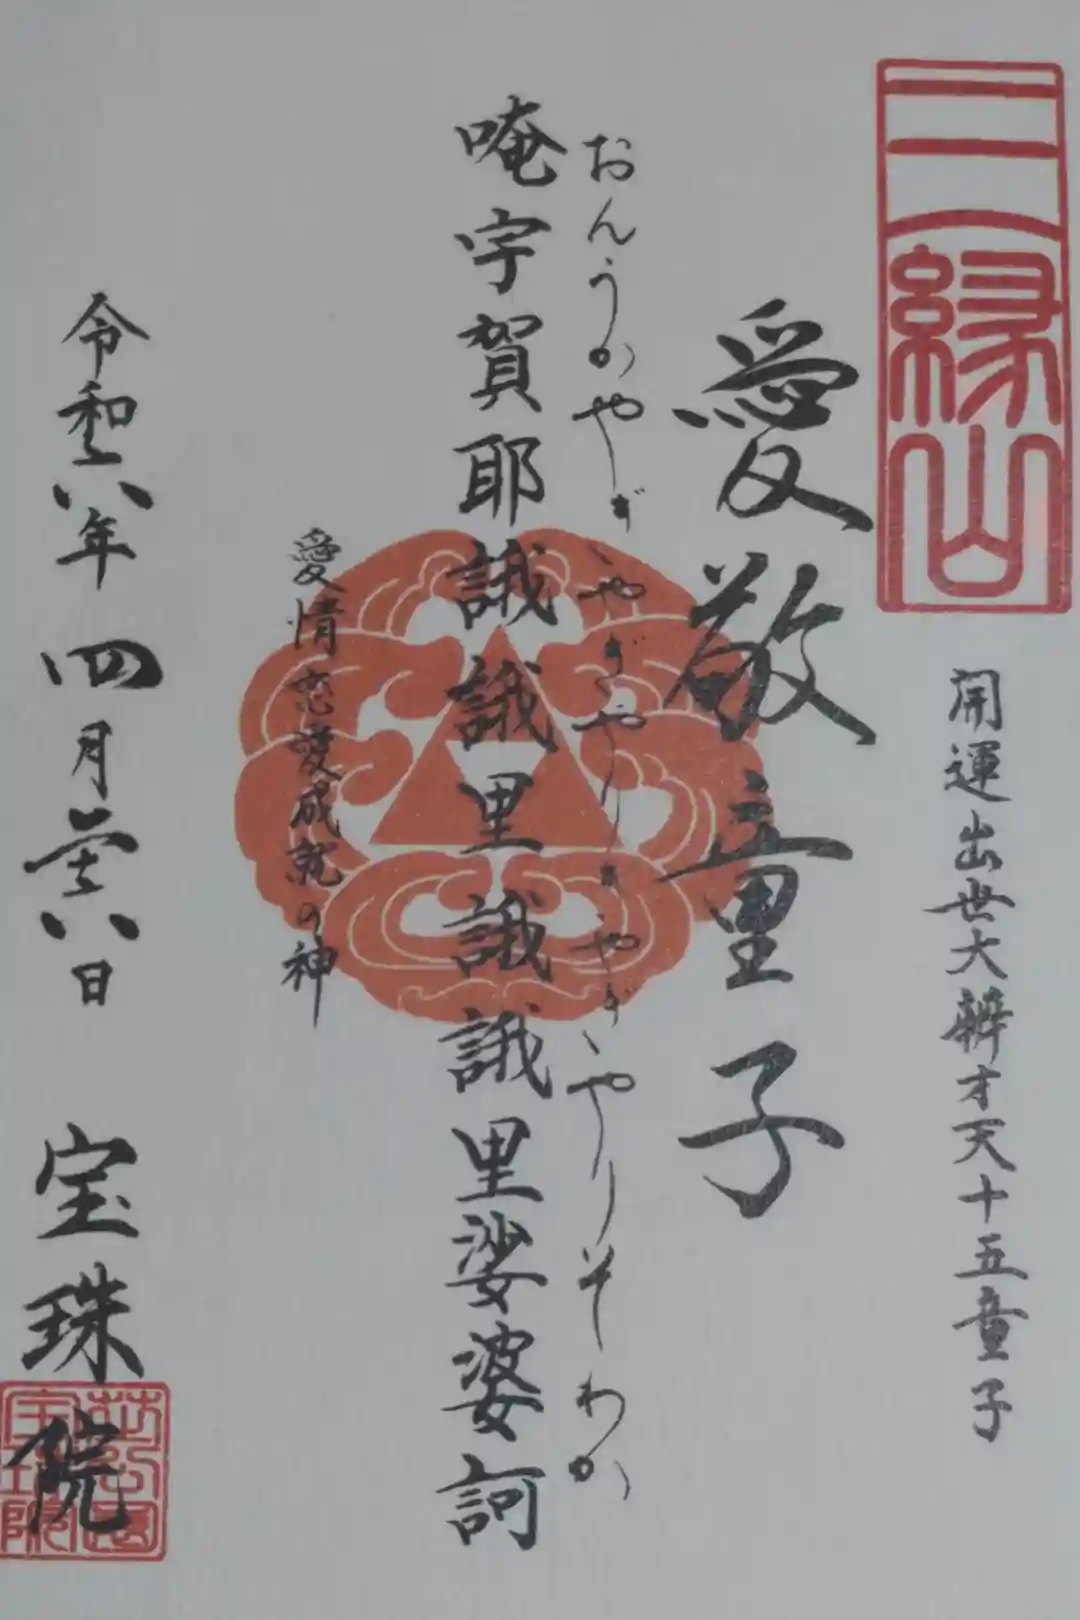 三縁山
開運出世大辨才天十五童子
愛敬童子
おんうかやぎやぎやりぎやぎやりそわか
唵宇賀耶誐誐里誐誐里娑婆訶
愛情恋愛成就の神
令和六年四月廿六日 宝珠院
芝公園
宝珠院